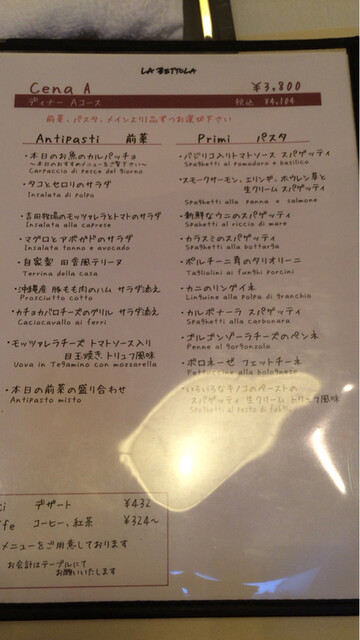 LA BETTOLA
Cena A ¥3,800
ディナー Aコース 税込 ¥4,104
前菜、パスタ、メインより1品ずつお選び下さい
Antipasti 前菜
・本日のお魚のカルパッチョ
～本日のおすすめメニューをご覧下さい～
Carpaccio di pesce del giorno
・タコとセロリのサラダ
Insalata di polpo
・吉田牧場のモッツァレラとトマトのサラダ
Insalata alla caprese
・マグロとアボガドのサラダ
Insalata tonno e avocado
・自家製 田舎風テリーヌ
Terrina della casa
・沖縄産 豚もも肉のハム サラダ添え
Prosciutto cotto
・カチョカバロチーズのグリル サラダ添え
Caciocavallo ai ferri
・モッツァレラチーズ トマトソース入り
目玉焼き トリュフ風味
Uova in Tegamino con mozzarella
・本日の前菜の盛り合わせ
Antipasto misto
Primi パスタ
・バジリコ入りトマトソース スパゲッティ
Spaghetti al pomodoro e basilico
・スモークサーモン、エリンギ、ホウレン草と
生クリーム スパゲッティ
Spaghetti alla panna e salmone
・新鮮なウニのスパゲッティ
Spaghetti al riccio di mare
・カラスミのスパゲッティ
Spaghetti alla bottarga
・ポルチーニ茸のタリオリーニ
Tagliolini ai funghi porcini
・カニのリングイネ
Linguine alla polpa di granchio
・カルボナーラ スパゲッティ
Spaghetti alla carbonara
・ゴルゴンゾーラチーズのペンネ
Penne al gorgonzola
・ボロネーゼ フェットチーネ
Fettuccine alla bolognese
・いろいろなキノコのペーストの
スパゲッティ 生クリーム トリュフ風味
Spaghetti al pesto di
ci デザート ¥432
ffe コーヒー、紅茶 ¥324~
メニューをご用意しております
お会計はテーブルにて
お願いいたします